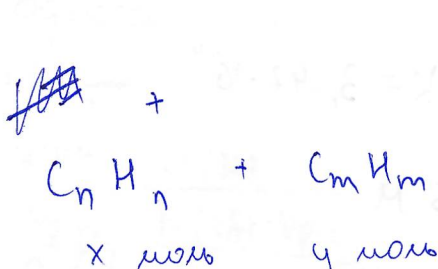 +
CₙHₙ + CₘHₘ
x моль y моль